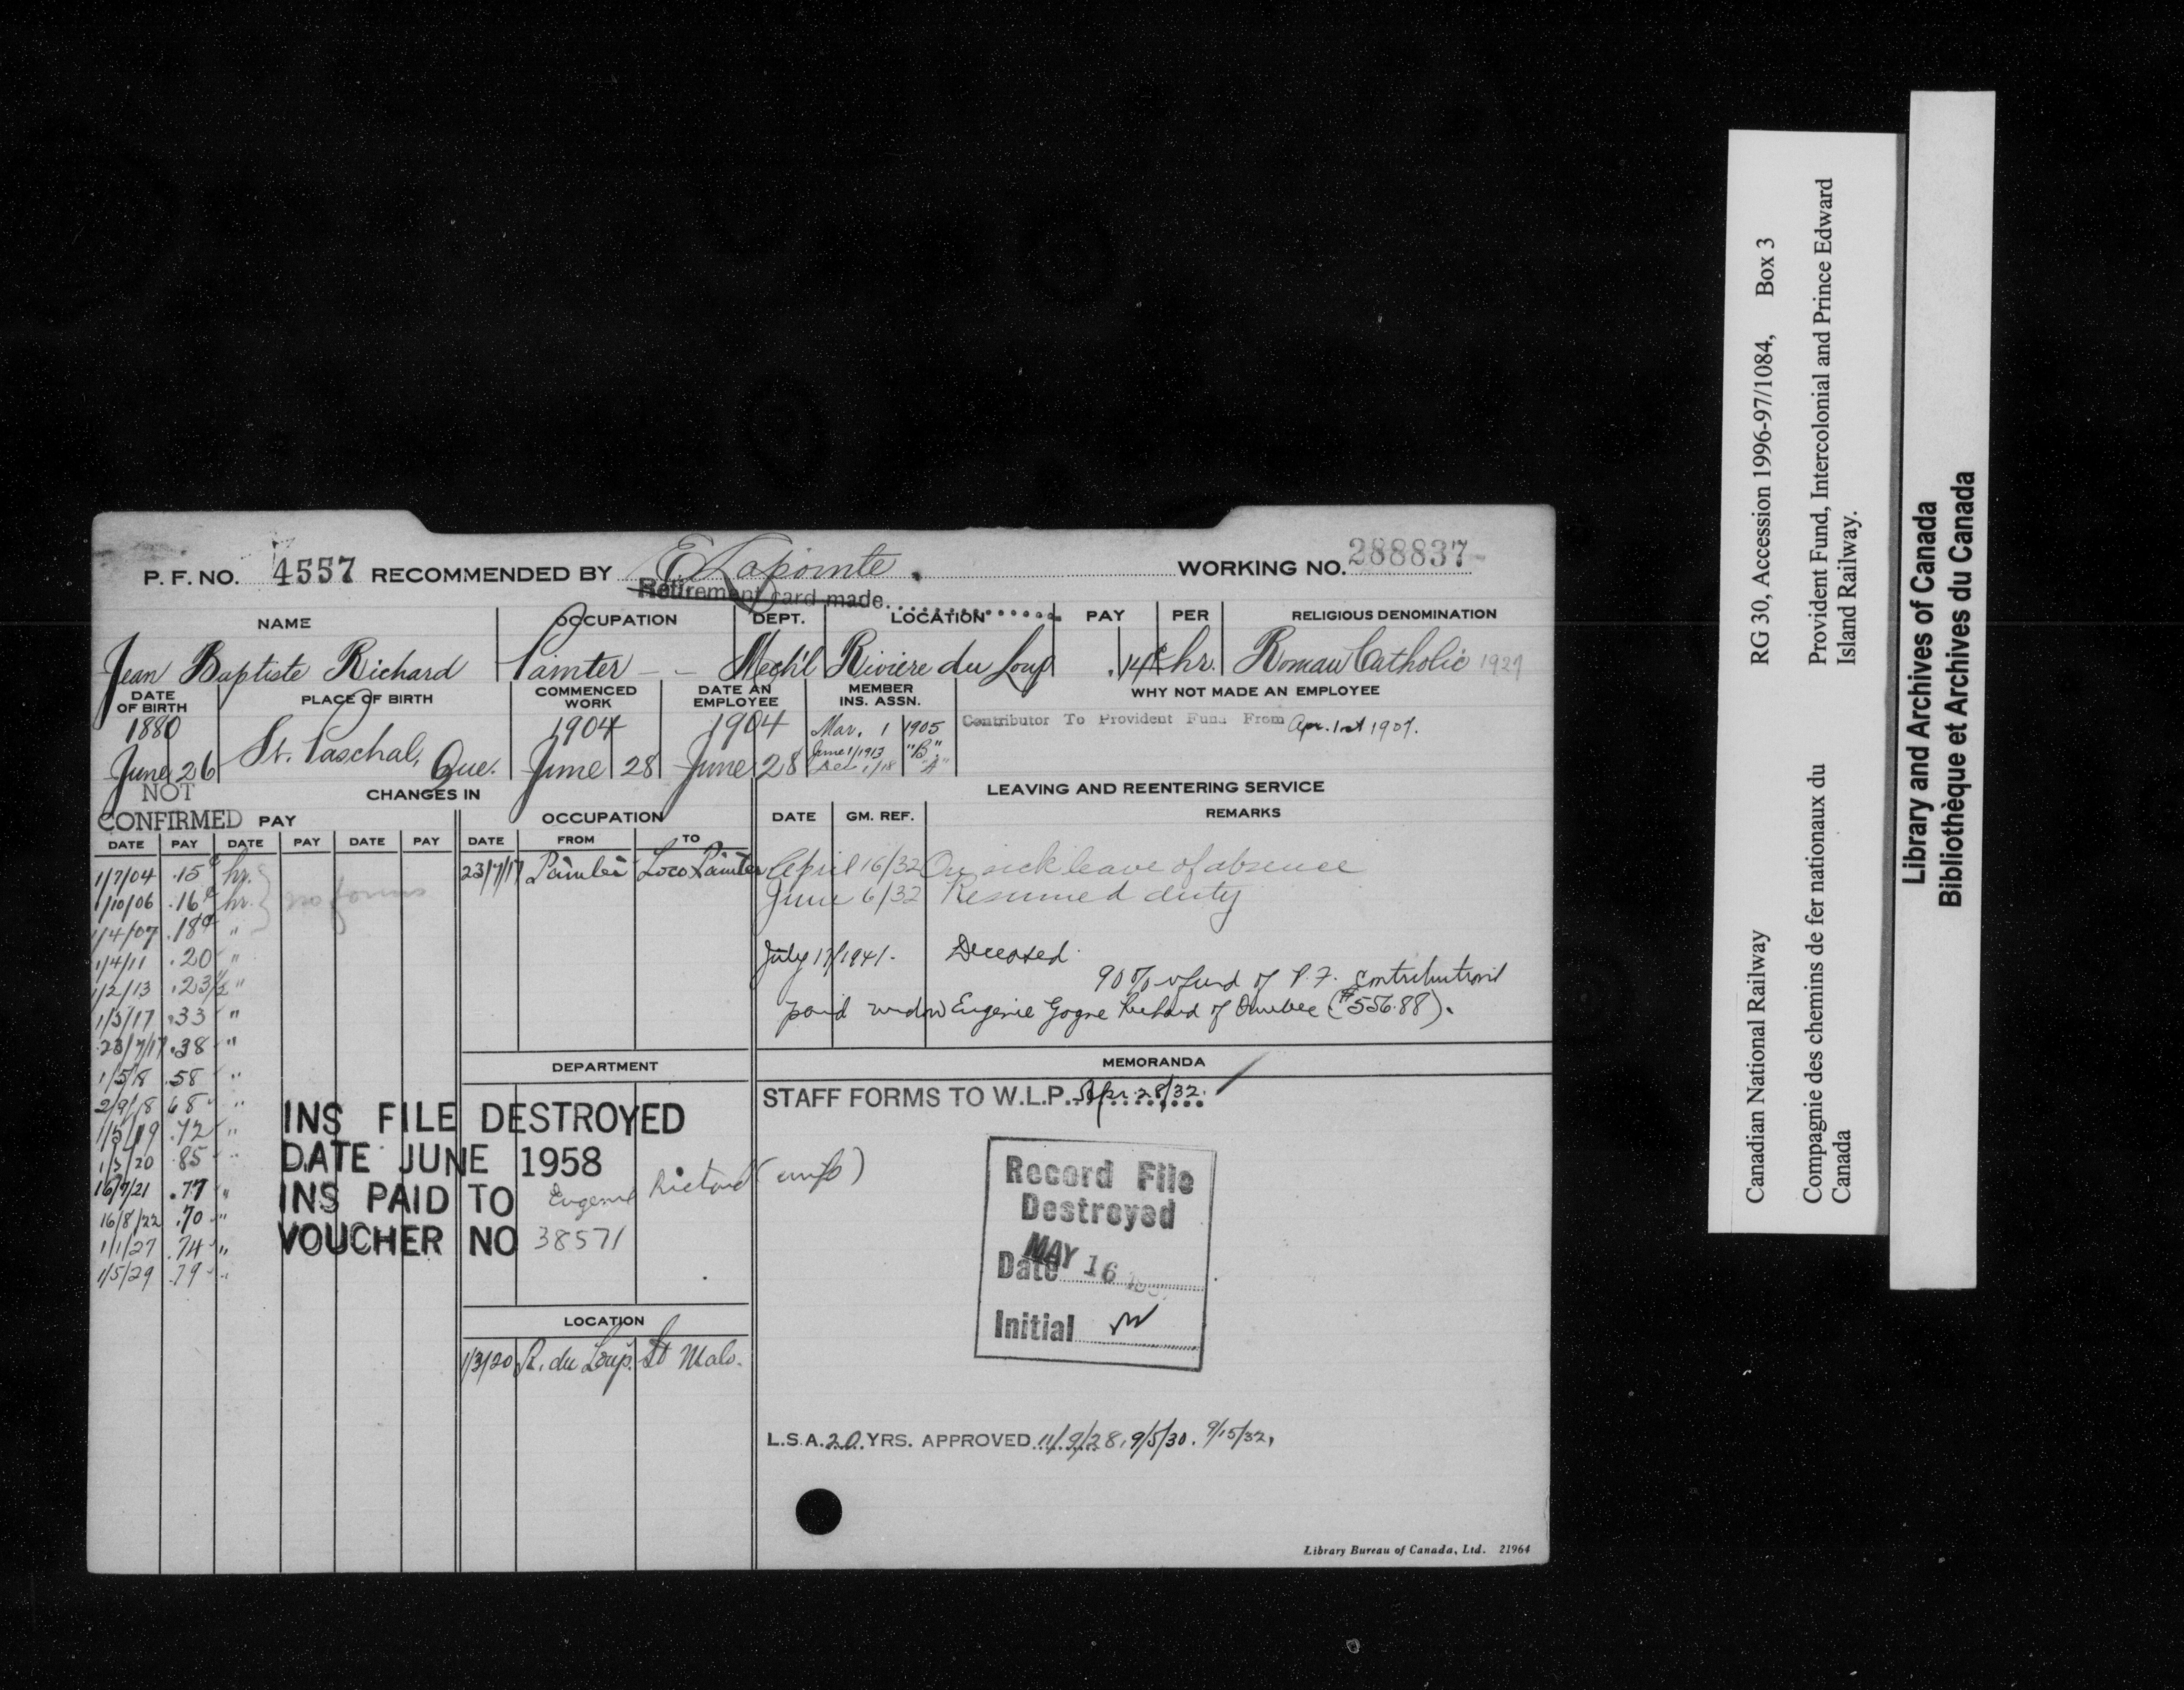 P. F. NO. 4557 RECOMMENDED BY E Lapointe WORKING NO. 288837
Retirement card made
NAME OCCUPATION DEPT. LOCATION PAY PER RELIGIOUS DENOMINATION
Jean Baptiste Richard Painter Mech'l Rivière du Loup .14¢ hr. Roman Catholic 1927
DATE OF BIRTH PLACE OF BIRTH COMMENCED WORK DATE AN EMPLOYEE MEMBER INS. ASSN. WHY NOT MADE AN EMPLOYEE
1880 1904 1904 Mar. 1 1905 Contributor To Provident Fund From Apr. 1st 1907.
June 26 St. Paschal, Que. June 28 June 28 June 1/1913 "B"
1/18 "A"
NOT CONFIRMED
CHANGES IN
PAY
DATE PAY DATE PAY DATE PAY
1/7/04 .15¢ hr.
1/10/06 .16¢ hr. no forms
1/4/07 .18¢ "
1/4/11 .20 "
1/2/13 .23½ "
1/3/17 .33 "
23/7/17 .38 "
1/5/18 .58 "
2/9/18 68 "
1/5/19 .72 "
1/5/20 .85 "
16/7/21 .77 "
16/8/22 .70 "
1/1/27 .74 "
1/5/29 .79 "
OCCUPATION
DATE FROM TO
23/7/17 Painter Loco Painter
DEPARTMENT
INS FILE DESTROYED
DATE JUNE 1958
INS PAID TO Eugenie Richard (wife)
VOUCHER NO 38571
LOCATION
1/3/20 R. du Loup. St Malo.
LEAVING AND REENTERING SERVICE
DATE GM. REF. REMARKS
April 16/32 On sick leave of absence
June 6/32 Resumed duty
July 17/1941. Deceased.
90% refund of P.F. Contributions
paid widow Eugenie Gogne Richard of Quebec ($556.88).
MEMORANDA
STAFF FORMS TO W.L.P. Apr. 28/32.
Record File
Destroyed
Date MAY 16
Initial
L.S.A. 20 YRS. APPROVED 11/9/28, 9/5/30. 9/15/32,
Library Bureau of Canada, Ltd. 21964
Canadian National Railway RG 30, Accession 1996-97/1084, Box 3
Compagnie des chemins de fer nationaux du Canada
Provident Fund, Intercolonial and Prince Edward Island Railway.
Library and Archives of Canada
Bibliothèque et Archives du Canada